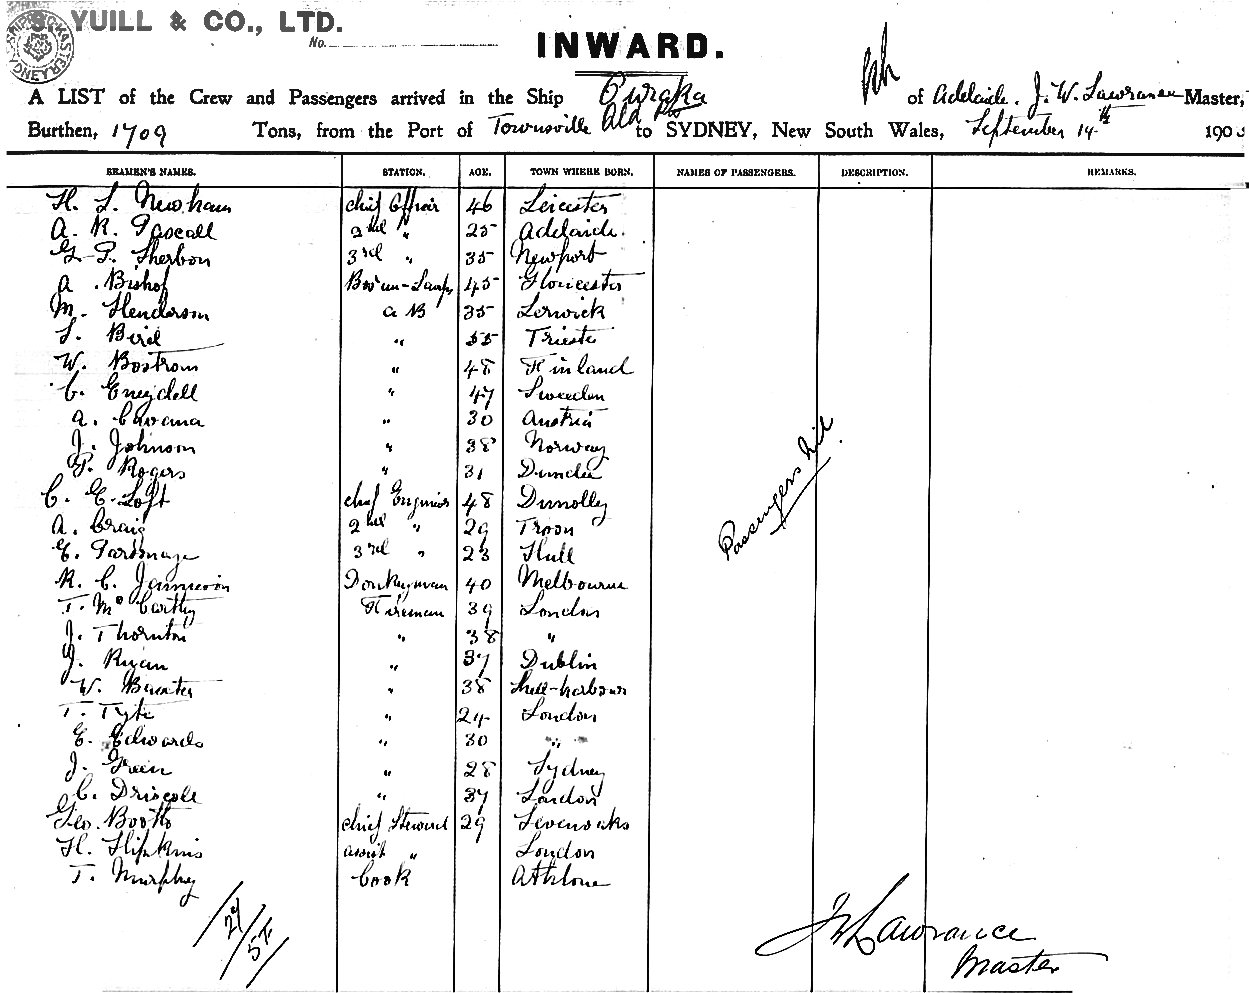 S. YUILL & CO., LTD.
No.
INWARD.
A LIST of the Crew and Passengers arrived in the Ship Owraka of Adelaide. J. W. Lawrance Master,
Burthen, 1709 Tons, from the Port of Townsville to SYDNEY, New South Wales, September 14th 190
SEAMEN'S NAMES. STATION. AGE. TOWN WHERE BORN. NAMES OF PASSENGERS. DESCRIPTION. REMARKS.
H. L. Newham chief Officer 46 Leicester
A. R. Pascall 2nd " 25 Adelaide.
G. P. Sherbon 3rd " 35 Newport
A. Bishop Bos'un-Lamps 45 Gloucester
M. Henderson A B 35 Lerwick
L. Bird " 55 Trieste
W. Bostrom " 48 Finland
C. " 47 Sweeden
A. Cavana " 30 Austria
J. Johnson " 38 Norway
P. Rogers " 31 Dundee
C. E. Loft chief Engineer 48 Dunolley
A. Craig 2nd " 29 Troon
E. 3rd " 23 Hull
R. C. Jamieson Donkeyman 40 Melbourne
T. McCarthy Fireman 39 London
J. Thornton " 38 "
J. Ryan " 37 Dublin
W. " 38
T. Tyte " 24 London
E. Edwards " 30 "
J. Green " 28 Sydney
C. Driscole " 37 London
Geo. Booth chief Steward 29 Sevenoaks
H. Hipkins assist " London
T. Murphy Cook Athlone
Passengers Nil
27/57
J W Lawrance
Master